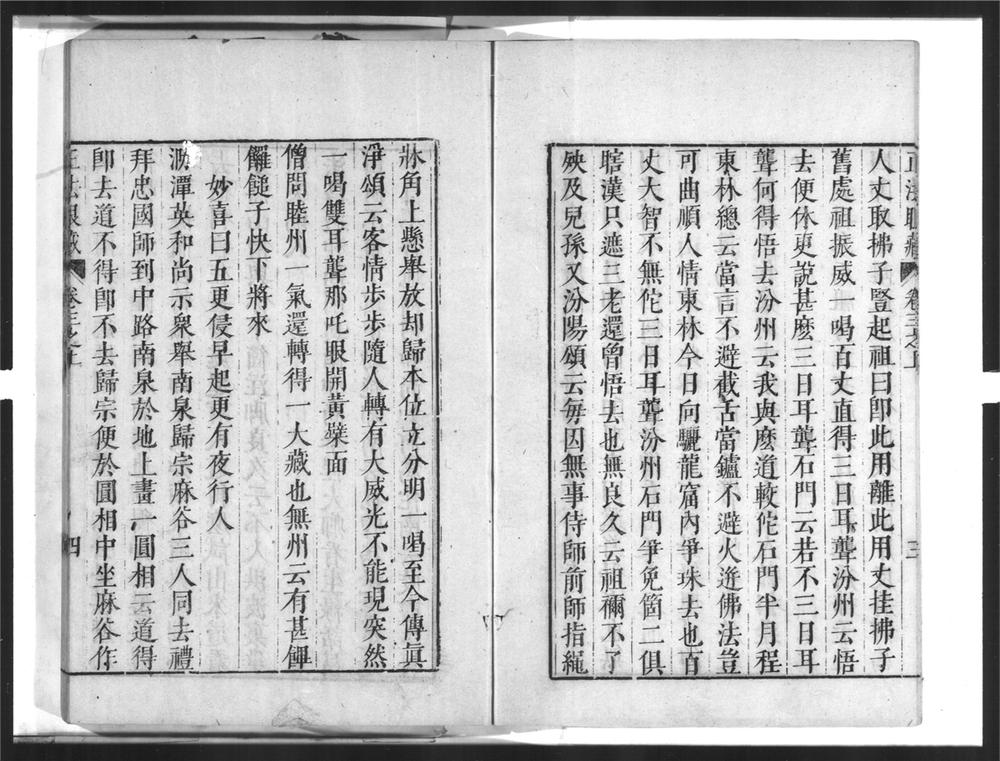 正法眼藏 卷三之上 三
人丈取拂子豎起祖曰卽此用離此用丈挂拂子
舊處祖振威一喝百丈直得三日耳聾汾州云悟
去便休更說甚麽三日耳聾石門云若不三日耳
聾何得悟去汾州云我與麽道較佗石門半月程
東林總云當言不避截舌當鑪不避火迸佛法豈
可曲順人情東林今日向驪龍窟內爭珠去也百
丈大智不無佗三日耳聾汾州石門爭免箇二俱
瞎漢只遮三老還曾悟去也無良久云祖禰不了
殃及兒孫又汾陽頌云每因無事侍師前師指繩
牀角上懸舉放却歸本位立分明一喝至今傳真
淨頌云客情步步隨人轉有大威光不能現突然
一喝雙耳聾那吒眼開黃檗面
僧問睦州一氣還轉得一大藏也無州云有甚饆
饠鎚子快下將來
妙喜曰五更侵早起更有夜行人
泐潭英和尚示衆舉南泉歸宗麻谷三人同去禮
拜忠國師到中路南泉於地上畫一圓相云道得
卽去道不得卽不去歸宗便於圓相中坐麻谷作
正法眼藏 卷三之上 四